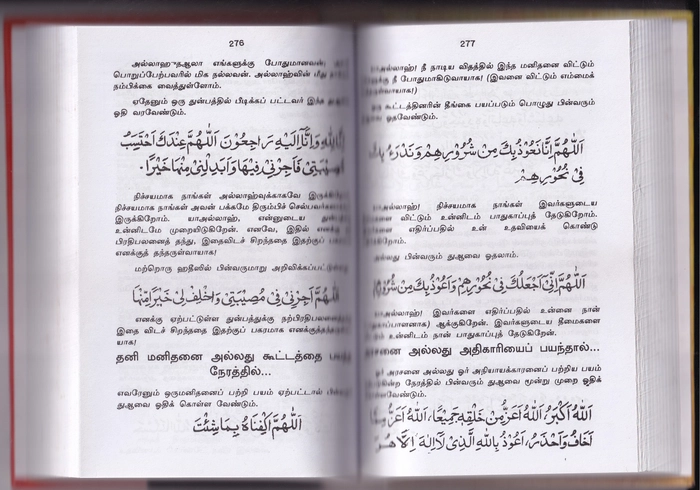 276
அல்லாஹுதஆலா எங்களுக்கு போதுமானவன்
பொறுப்பேற்பவரில் மிக நல்லவன். அல்லாஹ்வின் மீது
நம்பிக்கை வைத்துள்ளோம்.
ஏதேனும் ஒரு துன்பத்தில் பீடிக்கப் பட்டவர் இந்த
ஓதி வரவேண்டும்.
وَاِنَّا اِلَيْهِ رَاجِعُوْنَ اَللّٰهُمَّ عِنْدَكَ اَحْتَسِبُ
فَاْجِرْنِيْ فِيْهَا وَاَبْدِلْنِيْ مِنْهَا خَيْرًا.
நிச்சயமாக நாங்கள் அல்லாஹ்வுக்காகவே
நிச்சயமாக நாங்கள் அவன் பக்கமே திரும்பிச்
இருக்கிறோம். யாஅல்லாஹ், என்னுடைய
உன்னிடமே முறையிடுகிறேன். எனவே, இதில் எனக்கு
பிரதிபலனைத் தந்து, இதைவிடச் சிறந்ததை இதற்குப்
எனக்குத் தந்தருள்வாயாக!
மற்றொரு ஹதீஸில் பின்வருமாறு
اَللّٰهُمَّ اَجِرْنِيْ فِيْ مُصِيْبَتِيْ وَاخْلِفْ لِيْ خَيْرًا مِّنْهَا
எனக்கு ஏற்பட்டுள்ள துன்பத்துக்கு
இதை விடச் சிறந்ததை இதற்குப் பகரமாக
யாக!
தனி மனிதனை அல்லது கூட்டத்தை
நேரத்தில்...
எவரேனும் ஒருமனிதனைப் பற்றி பயம் ஏற்பட்டால்
துஆவை ஓதிக் கொள்ள வேண்டும்.
اَللّٰهُمَّ اكْفِنَاهُ بِمَا شِئْتَ
277
நீ நாடிய விதத்தில் இந்த மனிதனை விட்டும்
நீ போதுமாகிடுவாயாக! (இவனை விட்டும் எம்மைக்
கூட்டத்தினரின் தீங்கை பயப்படும் பொழுது பின்வரும்
ஓதவேண்டும்.
اَللّٰهُمَّ اِنَّا نَعُوْذُ بِكَ مِنْ شُرُوْرِهِمْ وَنَدْرَءُ بِكَ
فِيْ نُحُوْرِهِمْ
நிச்சயமாக நாங்கள் இவர்களுடைய
விட்டும் உன்னிடம் பாதுகாப்புத் தேடுகிறோம்.
எதிர்ப்பதில் உன் உதவியைக் கொண்டு
பின்வரும் துஆவை ஓதலாம்.
اَللّٰهُمَّ اِنِّيْ اَجْعَلُكَ فِيْ نُحُوْرِهِمْ وَاَعُوْذُ بِكَ مِنْ
இவர்களை எதிர்ப்பதில் உன்னை நான்
ஆக்குகிறேன். இவர்களுடைய தீமைகளை
உன்னிடம் நான் பாதுகாப்புத் தேடுகிறேன்.
அல்லது அதிகாரியைப் பயந்தால்...
அரசனை அல்லது ஓர் அநியாயக்காரனைப் பற்றிய பயம்
நேரத்தில் பின்வரும் துஆவை மூன்று முறை ஓதிக்
வேண்டும்.
اَللّٰهُ اَكْبَرُ اَللّٰهُ اَعَزُّ مِنْ خَلْقِهٖ جَمِيْعًا، اَللّٰهُ اَعَزُّ
اَخَافُ وَاَحْذَرُ، اَعُوْذُ بِاللّٰهِ الَّذِيْ لَا اِلٰهَ اِلَّا هُوَ